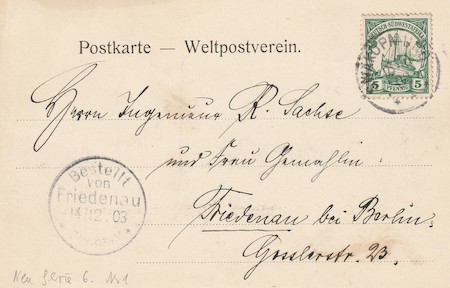 Postkarte — Weltpostverein.
DEUTSCH-SÜDWESTAFRIKA
5 PFENNIG 5
SWAKOPMUND
Herrn Ingenieur R. Sachse
und Frau Gemahlin.
Friedenau bei Berlin.
Gosslerstr. 23.
Bestellt
von
Friedenau
14.12.03